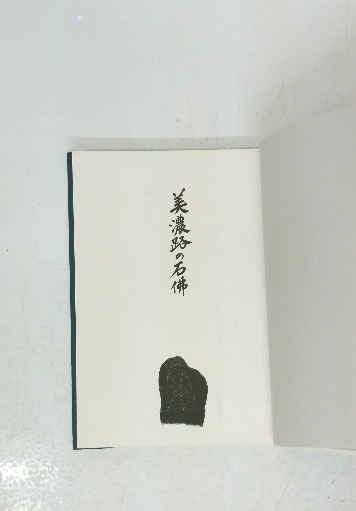 美濃路の石佛